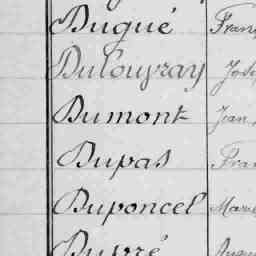 Duqué Fran
Dulouyray Jos
Dumont Jean
Dupas Fran
Duponcel Marie
Dupré